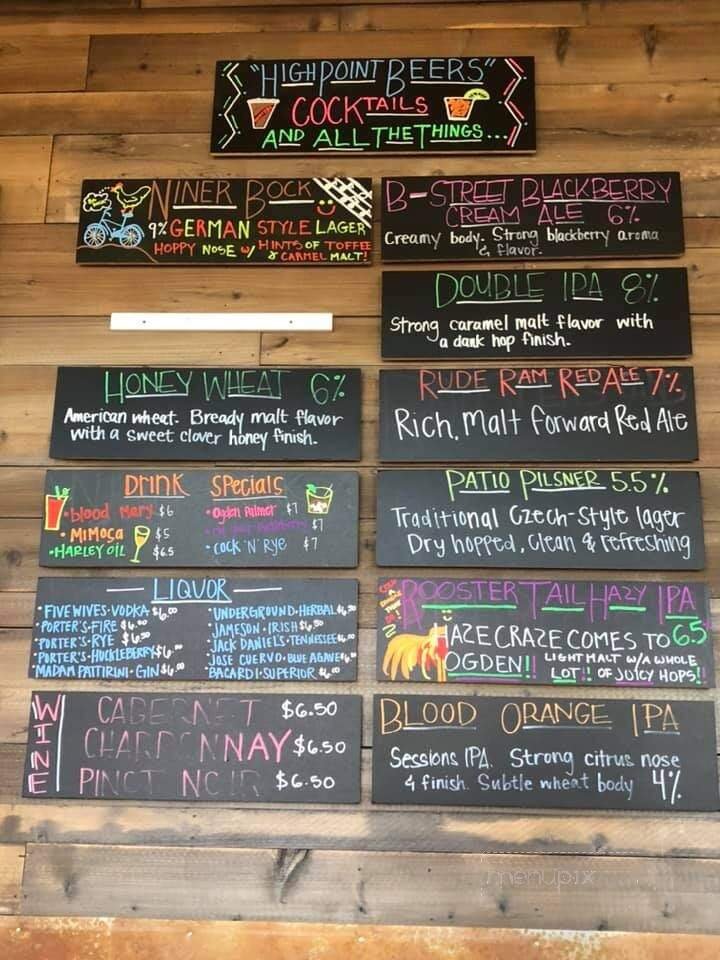 "HIGHPOINT BEERS"
COCKTAILS
AND ALL THE THINGS...
NINER BOCK
9% GERMAN STYLE LAGER
HOPPY NOSE W/ HINTS OF TOFFEE
& CARMEL MALT!
B-STREET BLACKBERRY
CREAM ALE 6%
Creamy body. Strong blackberry aroma
& flavor.
DOUBLE IPA 8%
Strong caramel malt flavor with
a dank hop finish.
HONEY WHEAT 6%
American wheat. Bready malt flavor
with a sweet clover honey finish.
RUDE RAM RED ALE 7%
Rich, Malt forward Red Ale
Drink Specials
• blood Mary $6
• MIMOCA $5
• HARLEY OIL $6.5
• Ogden Palmer $7
$7
• COCK 'N' Rye $7
PATIO PILSNER 5.5%
Traditional Czech-Style lager
Dry hopped, Clean & refreshing
LIQUOR
• FIVE WIVES • VODKA $6.00
• PORTER'S • FIRE $6.00
• PORTER'S • RYE $6.50
• PORTER'S • HUCKLEBERRY $6.00
• MADAM PATTIRINI • GIN $6.00
• UNDERGROUND • HERBAL
• JAMESON • IRISH
• JACK DANIEL'S • TENNESSEE
• JOSE CUERVO • BLUE AGAVE
• BACARDI • SUPERIOR
ROOSTER TAIL HAZY IPA
HAZE CRAZE COMES TO 6.5
OGDEN!! LIGHT MALT W/A WHOLE
LOT!! OF JUICY HOPS!!
WINE
CABERNET $6.50
CHARDONNAY $6.50
PINOT NOIR $6.50
BLOOD ORANGE IPA
Sessions IPA. Strong citrus nose
& finish. Subtle wheat body 4%
menupix